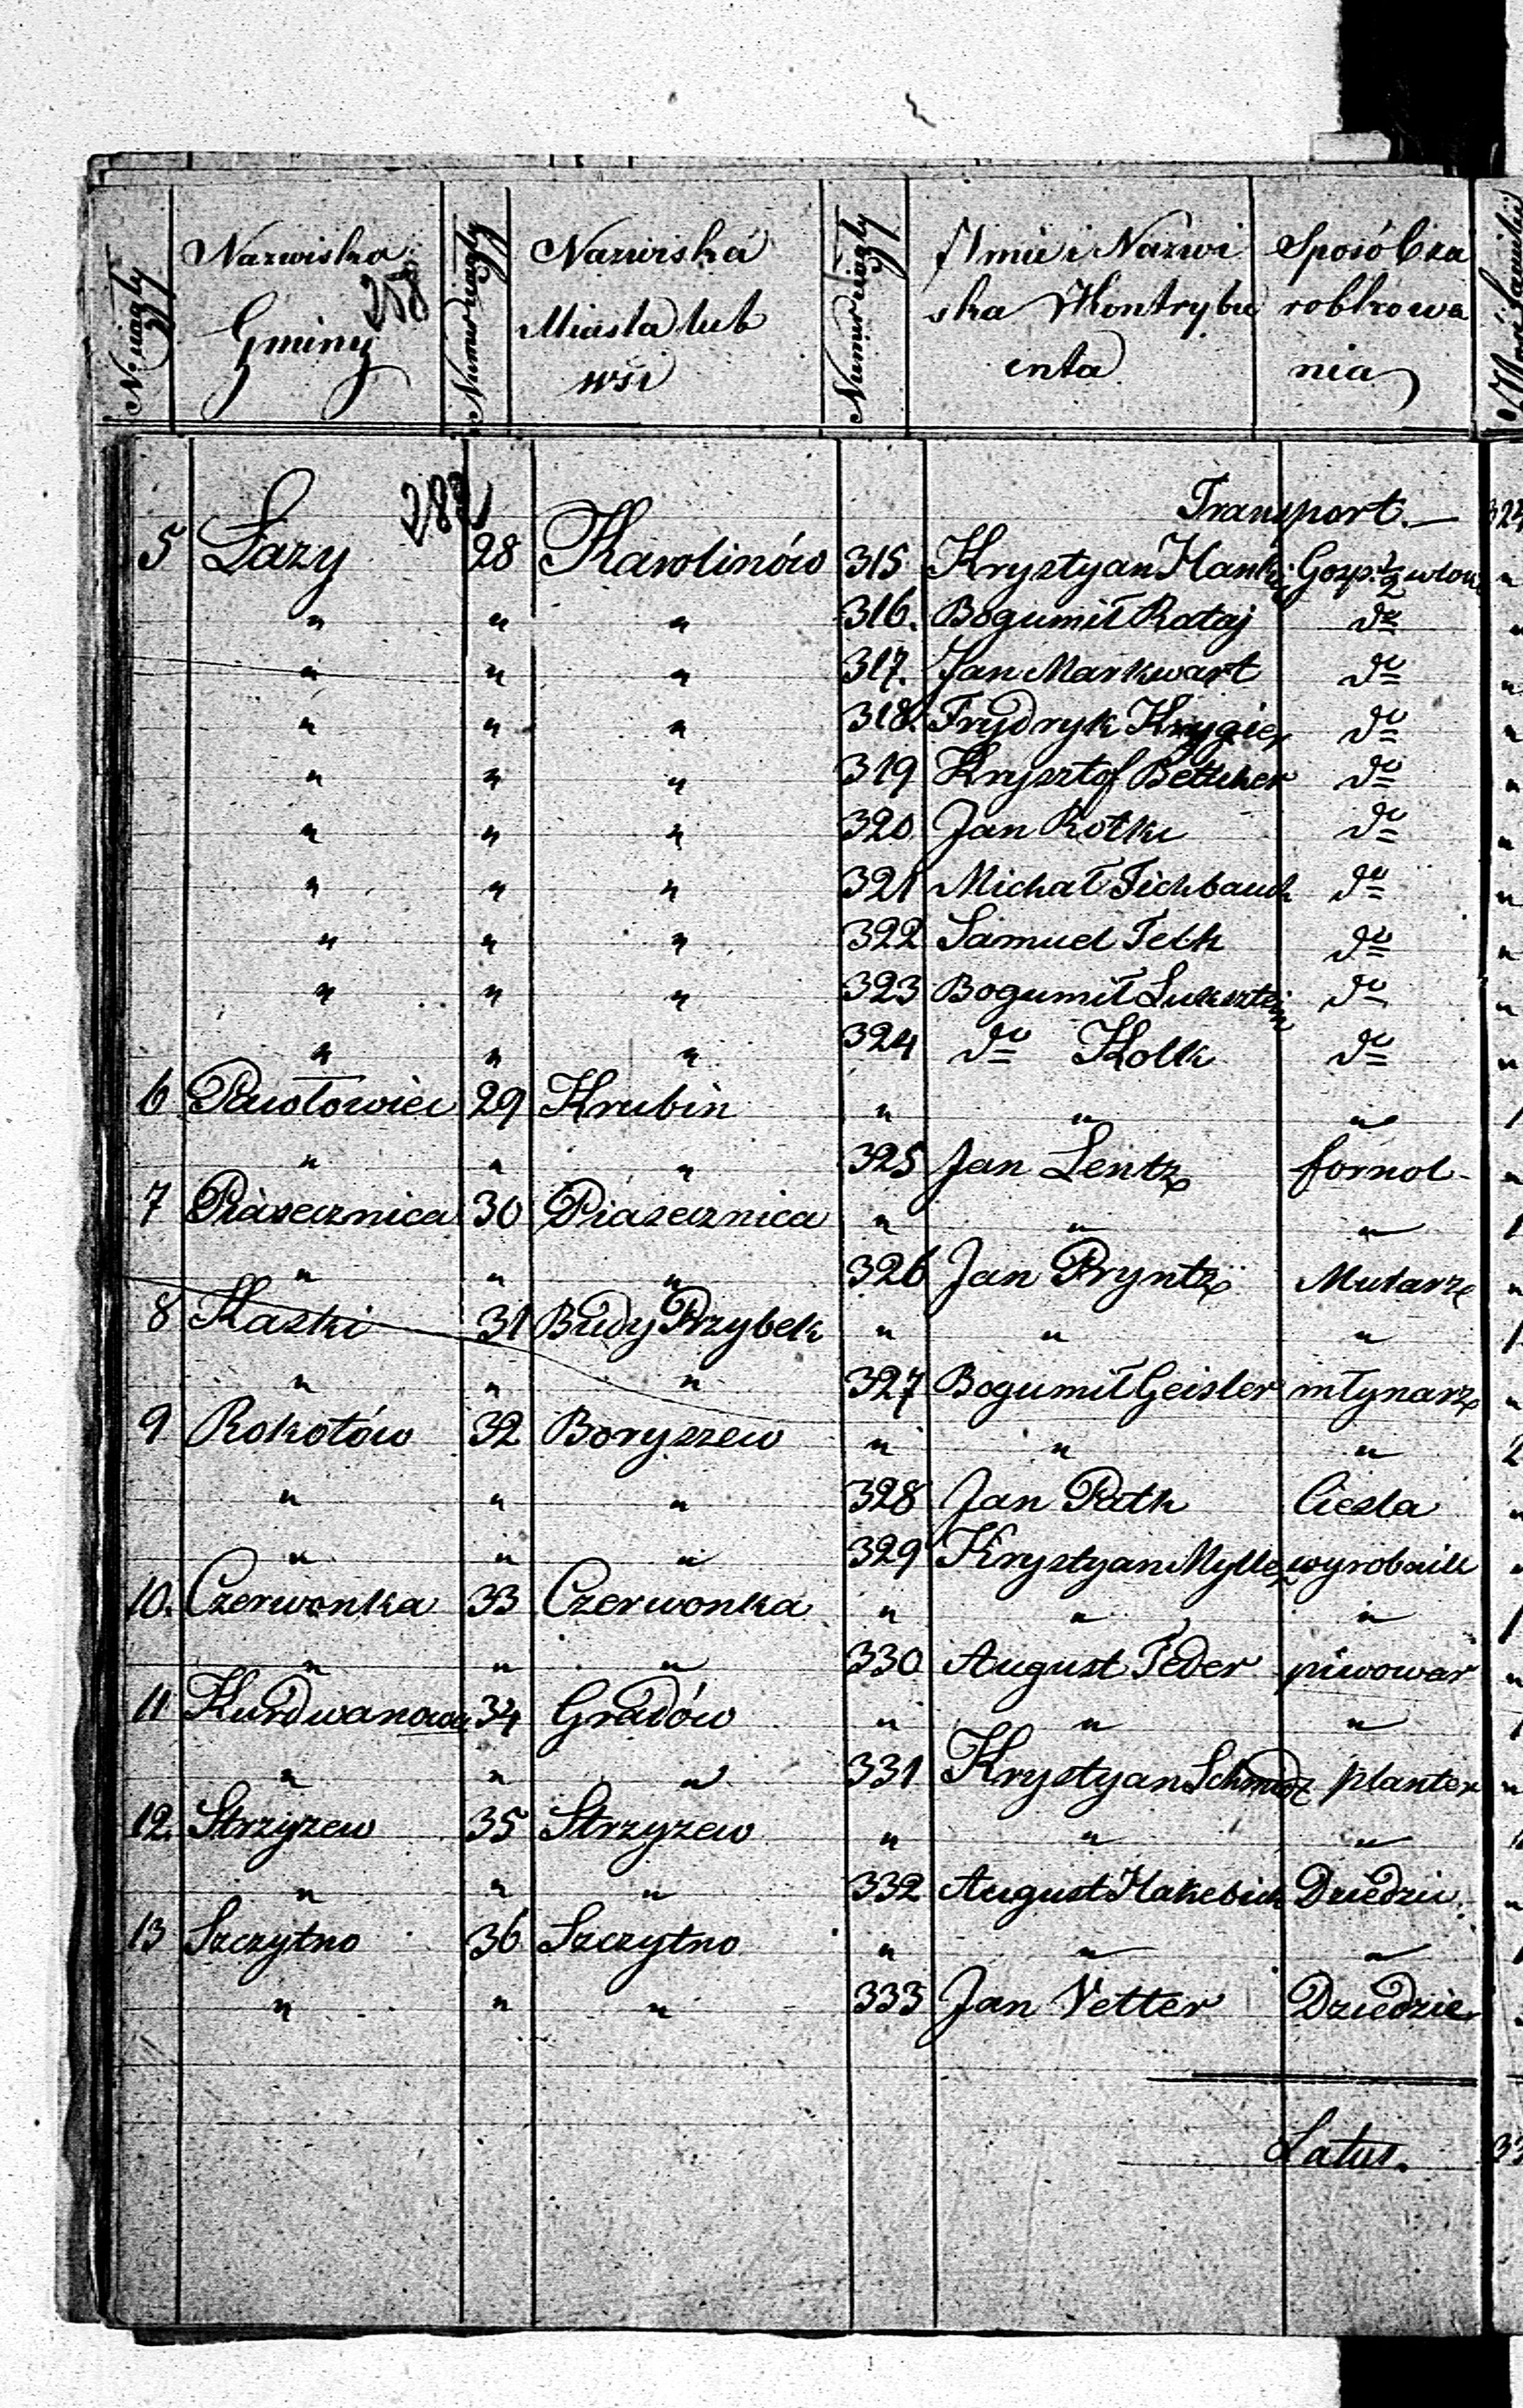 N. ciągły | Nazwiska Gminy | Numer ciągły | Nazwiska Miasta lub wsi | Numer ciągły | Imie i Nazwiska Kontrybuenta | Sposób zarobkowania
258
282
Transport. — 324
5 Łazy 28 Karolinów 315 Krystyan Hanke Gosp: 1/2 włoki "
" " " 316. Bogumił Rataj do "
" " " 317. Jan Markwart do "
" " " 318. Frydryk Krygier do "
" " " 319 Krysztof Bettcher do "
" " " 320 Jan Rotke do "
" " " 321 Michał Fichbauch do "
" " " 322 Samuel Felk do "
" " " 323 Bogumił Luksztein do "
" " " 324 do Kolk do "
6 Pawłowice 29 Krubin " " " 1
" " " 325 Jan Lentz fornal "
7 Piasecznica 30 Piasecznica " " " 1
" " " 326 Jan Pryntz Mularz "
8 Kaski 31 Budy Przybek " " " 1
" " " 327 Bogumił Geisler młynarz "
9 Rokotów 32 Boryszew " " " 2
" " " 328 Jan Path Ciesla "
" " " 329 Krystyan Myller wyrobnik "
10. Czerwonka 33 Czerwonka " " " 1
" " " 330 August Feder piwowar "
11 Kurdwanowa 34 Gradów " " " 1
" " " 331 Krystyan Schmidz planter "
12. Strzyzew 35 Strzyzew " " "
" " " 332 August Hakebich Dziedzic "
13 Szczytno 36 Szczytno " " " 1
" " " 333 Jan Vetter Dziedzic
Latus. 33